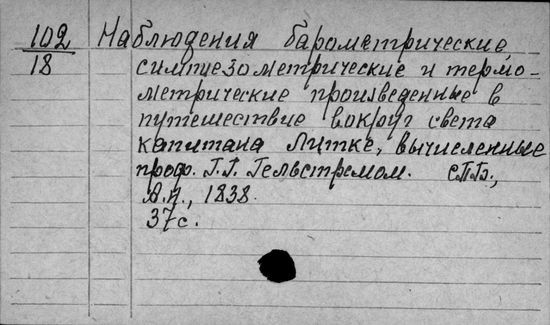 102 Наблюдения барометрические
18 симпиезометрические и термо-
метрические произведенные в
путешествие вокруг света
капитана Литке, вычисленные
проф. Г.Г. Гельстремом. СПБ.,
А.Н., 1838.
37с.